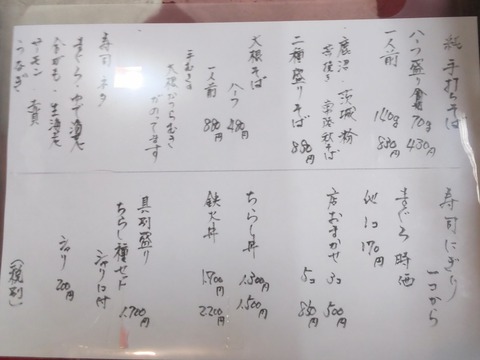 純手打ちそば
ハーフ盛り 70g 430円
一人前 140g 830円
鹿沼・茨城粉
常陸秋そば
二種盛りそば 880円
大根そば
ハーフ 480円
一人前 880円
手むきの
大根かつらむき
がのってます
寿司ネタ
まぐろ・ゆで海老
サーモン
うなぎ
寿司にぎり
一コから
まぐろ 時価
他 1コ 170円
店おまかせ 3コ 500円
5コ 850円
ちらし丼 1.300 1.500円
鉄火丼 1.900 2.200円
具別盛り
ちらし種セット
シャリ付 1.700円
シャリ 200円
(税別)